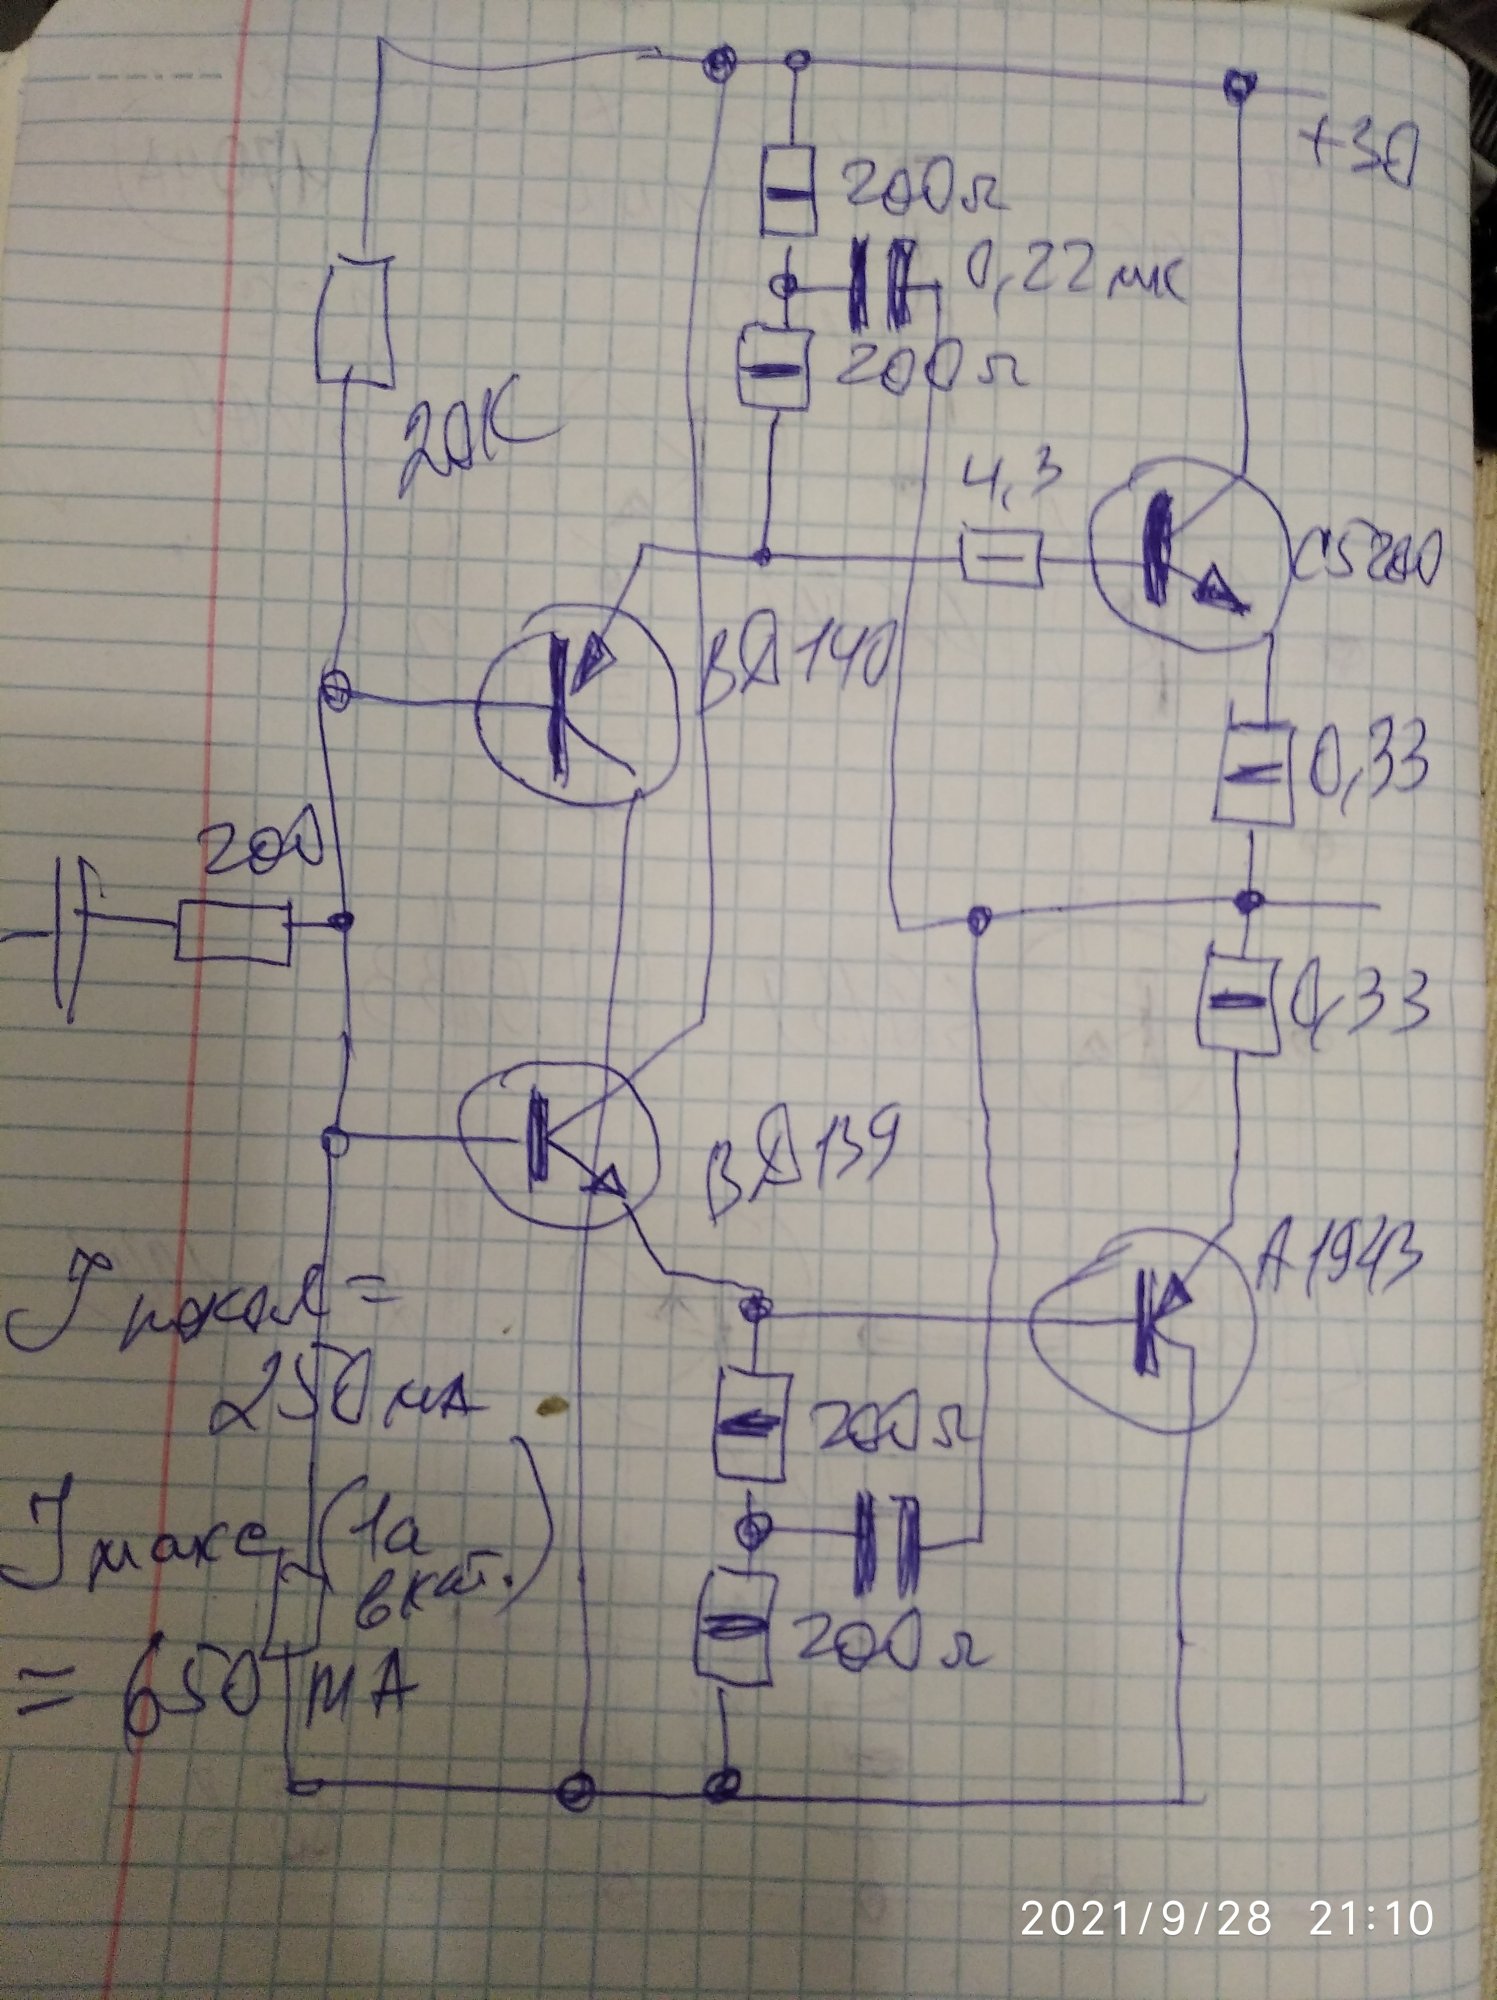 +30
200Ω
0,22мк
200Ω
20К
4,3
C5200
ВД140
0,33
200
0,33
ВД139
A1943
Jпокоя =
250мА
200Ω
Jмакс (1а
вкат.)
= 650 mA
200Ω
2021/9/28 21:10